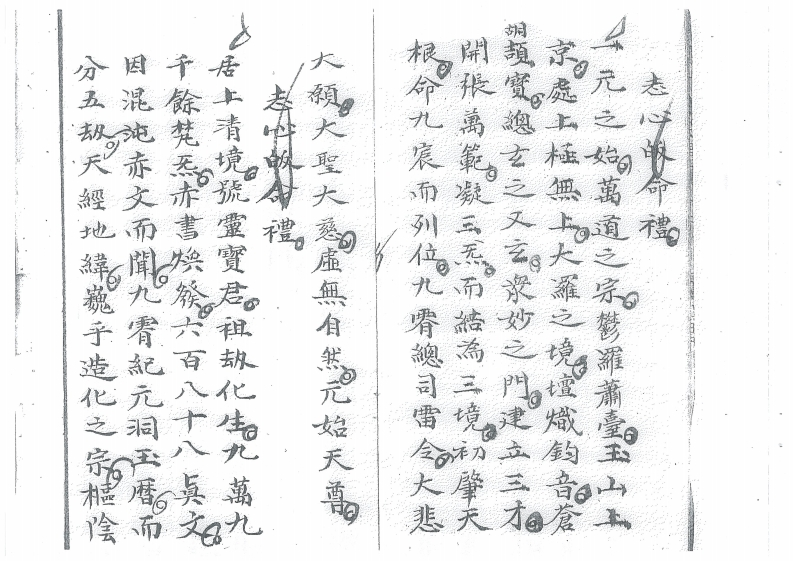 志心皈命禮
一元之始萬道之宗鬱羅蕭臺玉山上
京處上極無上大羅之境壇熾鈞音蒼
胡
頡寶總玄之又玄衆妙之門建立三才
開張萬範凝三炁而結為三境初肇天
根命九宸而列位九霄總司雷令大悲
大願大聖大慈虛無自然元始天尊
志心皈命禮
居上清境號靈寶君祖劫化生九萬九
千餘梵炁赤書煥發六百八十八真文
因混沌赤文而聞九霄紀元洞玉曆而
分五劫天經地緯巍乎造化之宗樞陰